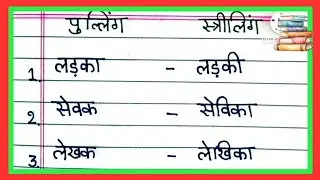 पुल्लिंग स्त्रीलिंग
1. लड़का - लड़की
2. सेवक - सेविका
3. लेखक - लेखिका